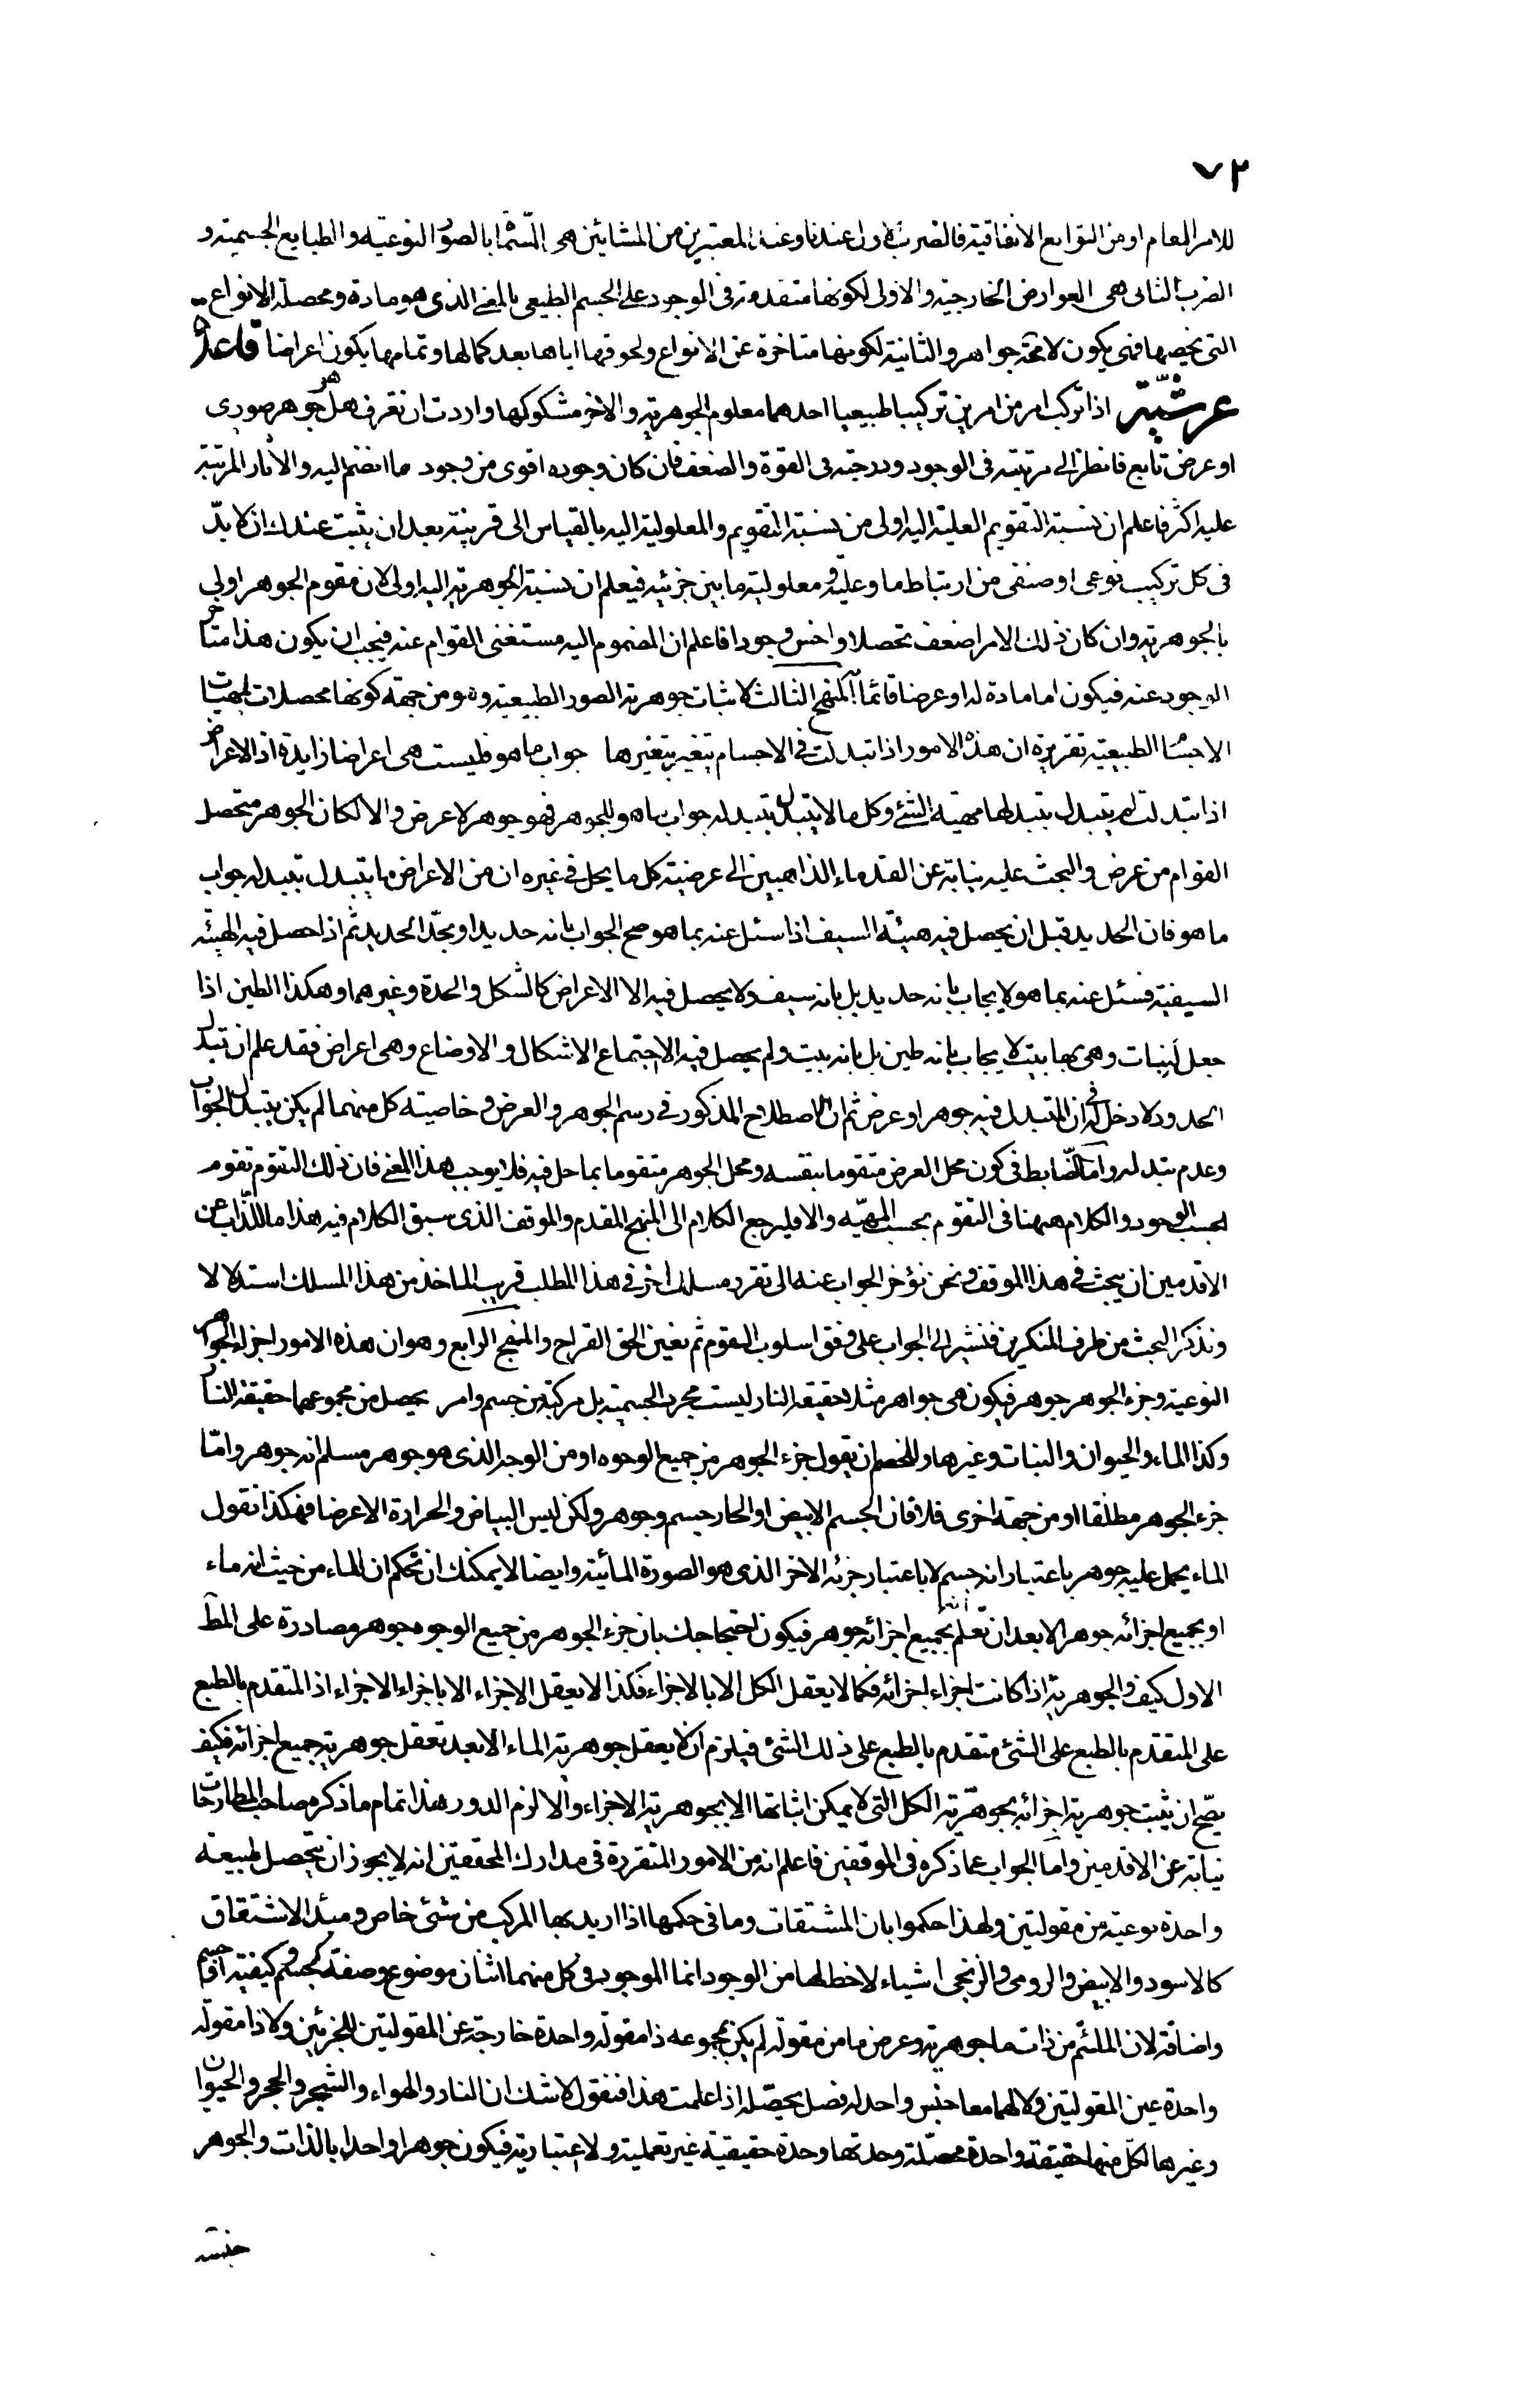 ٧٢
للامر العام او من التوابع الاتفاقية فالضرب الاول عندنا وعند المعتبرين من المشائين هى المسماة بالصور النوعية والطبايع الجسمية و
الضرب الثانى هى العوارض الخارجية والاولى لكونها متقدمة فى الوجود على الجسم الطبيعى بالمعنى الذى هو مادة ومحصلة الانواع
التى يخصها فهى يكون لا محة جواهر والثانية لكونها متاخرة عن الانواع ولحوقها اياها بعد كمالها وتمامها يكون اعراضا قاعدة
عرشية اذا تركب امر من امرين تركيبا طبيعيا احدهما معلوم الجوهرية والاخر مشكوكها واردت ان تعرف هل هو جوهر صورى
او عرض تابع فانظر الى مرتبته فى الوجود ودرجته فى القوة والضعف فان كان وجوده اقوى من وجود ما انضم اليه والاثار المرتبة
عليه اكثر فاعلم ان نسبة التقويم العلية اليه اولى من نسبة التقويم والمعلولية اليه بالقياس الى قرينه بعد ان يثبت عندك ان لا بد
فى كل تركيب نوعى او صنفى من ارتباط ما وعلية ومعلولية ما بين جزئيه فيعلم ان نسبة الجوهرية اليه اولى لان مقوم الجوهر اولى
بالجوهرية وان كان ذلك الامر اضعف تحصلا واخس وجودا فاعلم ان المضموم اليه مستغنى القوام عنه فيجب ان يكون هذا متاخر
الوجود عنه فيكون اما مادة له او عرضا قائما المنهج الثالث لاثبات جوهرية الصور الطبيعية وهو من جهة كونها محصلات لمهيات
الاجسام الطبيعية تقريره ان هذه الامور اذا تبدلت فى الاجسام يتغير بتغيرها جواب ما هو فليست هى اعراضا زايدة اذ الاعراض
اذا تبدلت لم يتبدل بتبدلها مهية الشئ وكل ما لا يتبدل بتبدله جواب ما هو للجوهر فهو جوهر لا عرض والا لكان الجوهر متحصل
القوام من عرض والبحث عليه نيابة عن القدماء الذاهبين الى عرضية كل ما يحل فى غيره ان من الاعراض ما يتبدل بتبدله جواب
ما هو فان الحديد قبل ان يحصل فيه هيئة السيف اذا سئل عنه بما هو صح الجواب بانه حديد او بحد الحديد ثم اذا حصل فيه الهيئة
السيفية فسئل عنه بما هو لا يجاب بانه حديد بل بانه سيف ولا يحصل فيه الا الاعراض كالشكل والحدة وغيرهما وهكذا الطين اذا
جعل لبنات وهى بها بيتا لا يجاب بانه طين بل بانه بيت ولم يحصل فيه الا جتماع الاشكال والاوضاع وهى اعراض فقد علم ان تبدل
الحدود لا دخل له فى ان المتبدل فيه جوهر او عرض ثم ان الاصطلاح المذكور فى رسم الجوهر والعرض وخاصية كل منهما لم يكن بتبدل الجواب
وعدم تبدله واما الضابط فى كون محل العرض متقوما بنفسه ومحل الجوهر متقوما بما حل فيه فلا يوجب هذا المعنى فان ذلك التقوم تقوم
بحسب الوجود والكلام ههنا فى التقوم بحسب المهية والا فليرجع الكلام الى المنهج المقدم والموقف الذى سبق الكلام فيه هذا ما للذاب عن
الاقدمين ان يبحث فى هذا الموقف ونحن نؤخر الجواب عنه الى تقرير مسلك اخر فى هذا المطلب قريب الماخذ من هذا المسلك استدلالا
ونذكر البحث من طرف المنكرين فنشير الى الجواب على وفق اسلوب القوم ثم نعين الحق القراح والمنهج الرابع وهو ان هذه الامور اجزاء الجواهر
النوعية وجزء الجوهر جوهر فيكون هى جواهر مثلا حقيقة النار ليست مجرد الجسمية بل مركبة من جسم وامر يحصل من مجموعهما حقيقة النار
وكذا الماء والحيوان والنبات وغيرها وللخصم ان يقول جزء الجوهر من جميع الوجوه او من الوجه الذى هو جوهر مسلم انه جوهر واما
جزء الجوهر مطلقا او من جهة اخرى فلا فان الجسم الابيض او الحار جسم وجوهر ولكن ليس البياض والحرارة الا عرضا فهكذا نقول
الماء يحمل عليه جوهر باعتبار انه جسم لا باعتبار جزئه الاخر الذى هو الصورة المائية وايضا لا يمكنك ان تحكم ان الماء من حيث انه ماء
او بجميع اجزائه جوهر الا بعد ان تعلم بجميع اجزائه جوهر فيكون احتجاجك بان جزء الجوهر من جميع الوجوه جوهر مصادرة على المط
الاول كيف والجوهرية اذا كانت اجزاء اجزائه فكما لا يعقل الكل الا بالاجزاء فكذا لا يعقل الاجزاء الا باجزاء الاجزاء اذ المتقدم بالطبع
على المتقدم بالطبع على الشئ متقدم بالطبع على ذلك الشئ فيلزم ان لا يعقل جوهرية الماء الا بعد تعقل جوهرية جميع اجزائه فكيف
يصح ان يثبت جوهرية اجزائه بجوهرية الكل التى لا يمكن اثباتها الا بجوهرية الاجزاء والا لزم الدور هذا تمام ما ذكره صاحب المطارحات
نيابة عن الاقدمين واما الجواب عما ذكره فى الموقفين فاعلم انه من الامور المتقررة فى مدارك المحققين انه لا يجوز ان يتحصل طبيعة
واحدة نوعية من مقولتين ولهذا حكموا بان المشتقات وما فى حكمها اذا اريد بها المركب من شئ خاص ومبدأ الاشتقاق
كالاسود والابيض والرومى والزنجى اشياء لا حظ لها من الوجود انما الموجود فى كل منهما اثنان موضوع وصفة كجسم وكيفية او جسم
واضافة لان الملتئم من ذات ما جوهرية وعرض ما من مقولة لم يكن بمجموعه ذا مقولة واحدة خارجة عن المقولتين للجزئين ولا ذا مقولة
واحدة عين المقولتين ولا لهما معا جنس واحد له فصل يحصله اذا علمت هذا فنقول لا شك ان النار والهواء والشجر والحجر والحيوان
وغيرها لكل منها حقيقة واحدة محصلة وحدتها وحدة حقيقية غير تعملية ولا اعتبارية فيكون جوهرا واحدا بالذات والجوهر
جنسه